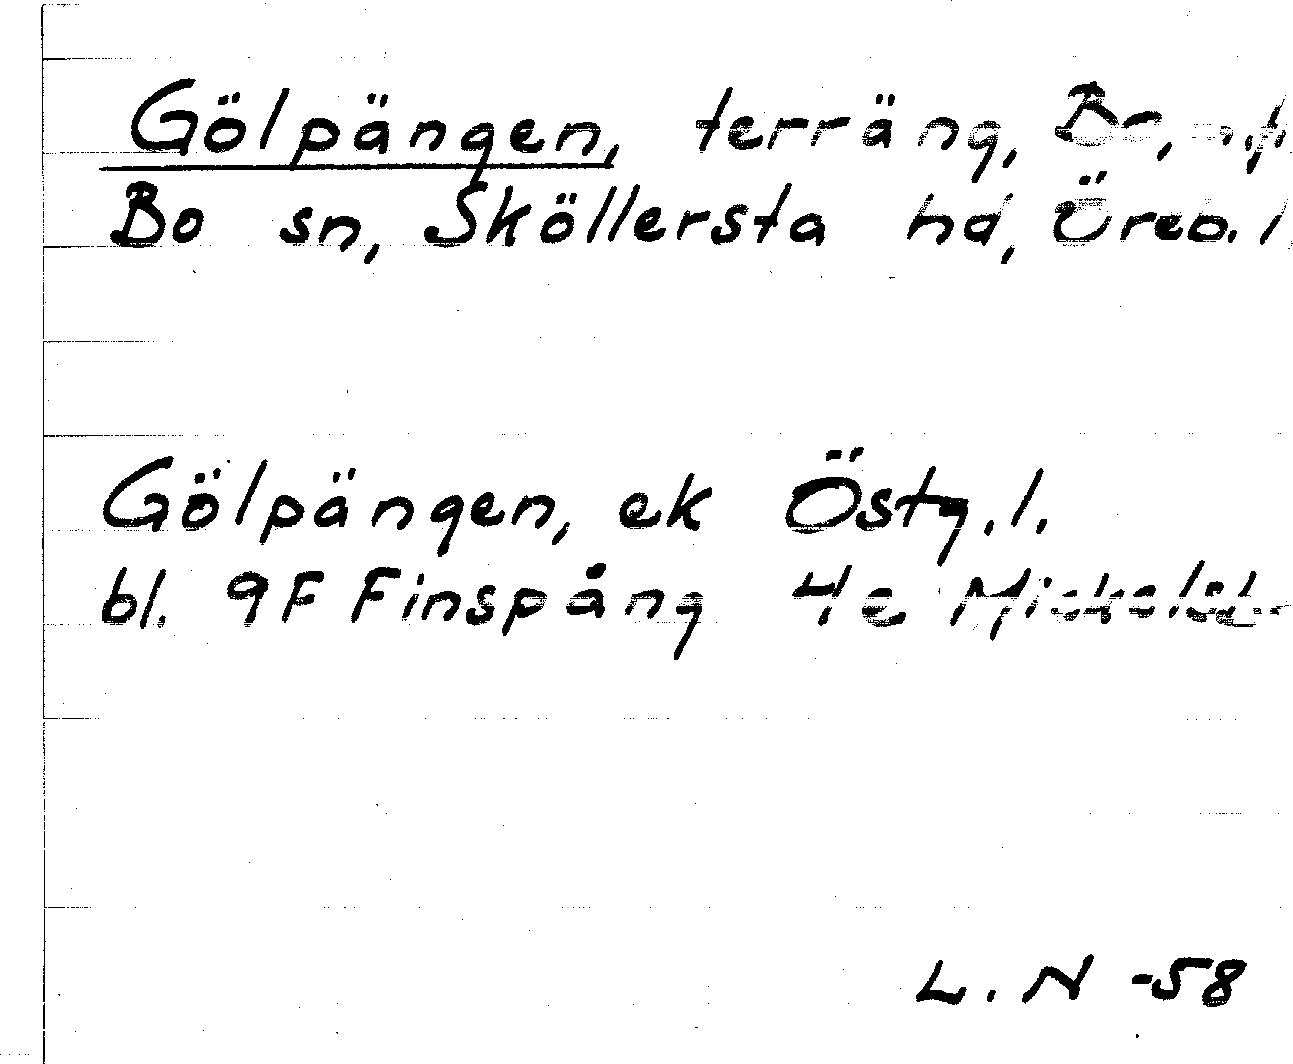 Gölpängen, terräng, Bo,
Bo sn, Sköllersta hd, Öreb. l.
Gölpängen, ek Östg. l.
bl. 9F Finspång 4e
L. N -58